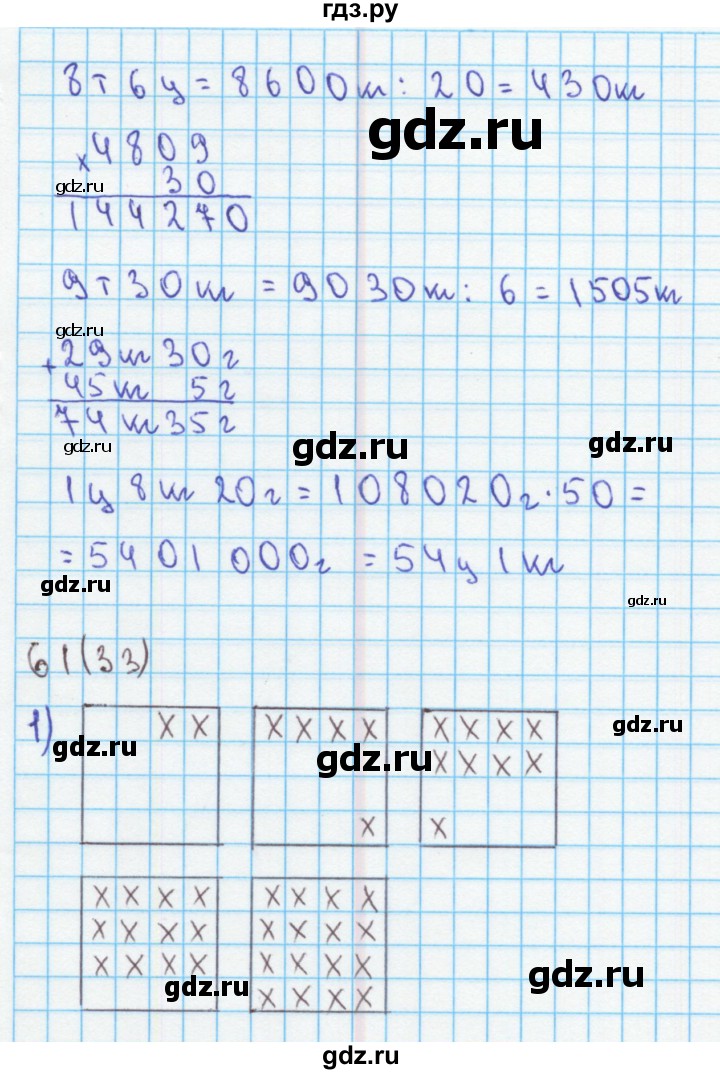 гдз.ру
8 т 6 ц = 8600 кг : 20 = 430 кг
gdz.ru
× 4809
gdz.ru 30
144270
9 т 30 кг = 9030 кг : 6 = 1505 кг
gdz.ru
+ 29 кг 30 г
45 кг 5 г
74 кг 35 г
gdz.ru gdz.ru gdz.ru
1 ц 8 кг 20 г = 108020 г · 50 =
= 5401000 г = 54 ц 1 кг
gdz.ru gdz.ru
61(33)
1) X X X X X X X X X X
gdz.ru gdz.ru gdz.ru
X X X X
X X
X X X X X X X X
X X X X X X X X
X X X X X X X X
gdz.ru X X X X gdz.ru
gdz.ru